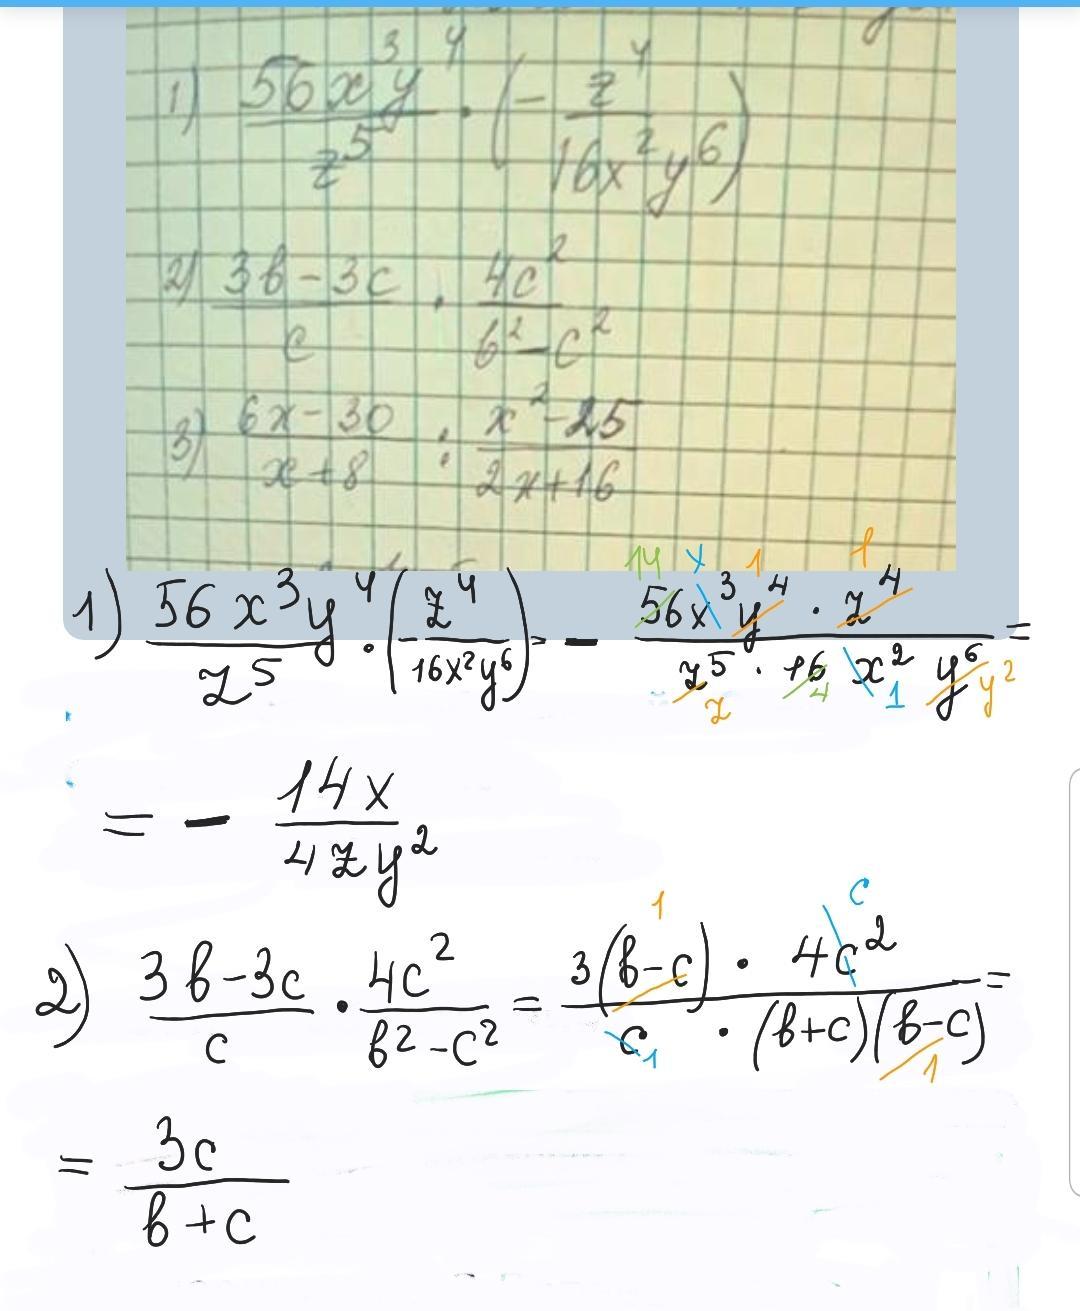 1) 56x³y⁴/z⁵ · (- z⁴/16x²y⁶)
2) 3в-3с/с · 4с²/в²-с²
3) 6x-30/x+8 : x²-25/2x+16
1) 56x³y⁴/z⁵ · (- z⁴/16x²y⁶) = - 56x³y⁴ · z⁴/z⁵ · 16x²y⁶ =
14 x 1 1
z 4 1 y²
= - 14x/4zy²
2) 3в-3с/с · 4с²/в²-с² = 3(в-с) · 4с²/с · (в+с)(в-с) =
1 с
1 1
= 3с/в+с